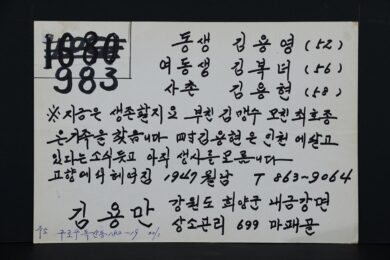 1080
983
동생 김용영 (52)
여동생 김복녀 (56)
사촌 김용현 (58)
※지금은 생존할지요 부친 김맹수 모친 최호종
은 가족을 찾읍니다 四寸 김용현은 인천에 살고
있다는 소식 듣고 아직 생사을 모름니다
고향에서 헤어짐 1947 월남 T 863-9064
김용만
강원도 회양군 내금강면
상소곤리 699 마패골
주소